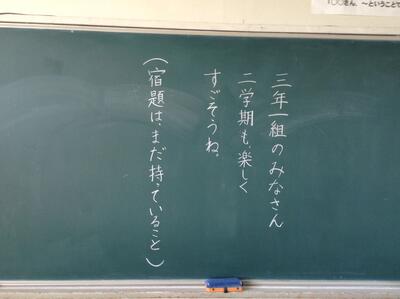 三年一組のみなさん
二学期も、楽しく
すごそうね。
(宿題は、まだ持っていること)
〜ということで